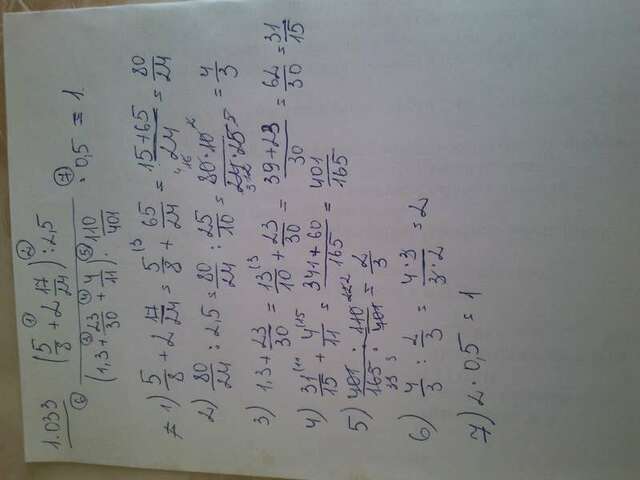 1.033 ① ②
(5/8 + 2 17/24) : 2,5
⑥ ③ ④ ⑤ ⑦ · 0,5 = 1
(1,3 + 23/30 + 4/11) · 110/401
1) 5/8 + 2 17/24 = 5/8 (3 + 65/24 = 15+65/24 = 80/24
2) 80/24 : 2,5 = 80/24 : 25/10 = 80·10/24·25 = 4/3
3) 1,3 + 23/30 = 13/10 (3 + 23/30 = 39+23/30 = 62/30 = 31/15
4) 31/15 (11 + 4/11 (15 = 341+60/165 = 401/165
5) 401/165 · 110/401 = 2/3
6) 4/3 : 2/3 = 4·3/3·2 = 2
7) 2 · 0,5 = 1